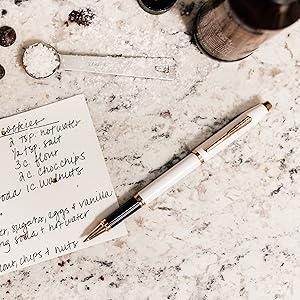 cookies
2 tsp. hot water
1/2 tsp. salt
3 c. flour
2 c. choc chips
soda 1 c. walnuts
er, sugars, eggs & vanilla
ng soda + hot water
lour, chips & nuts